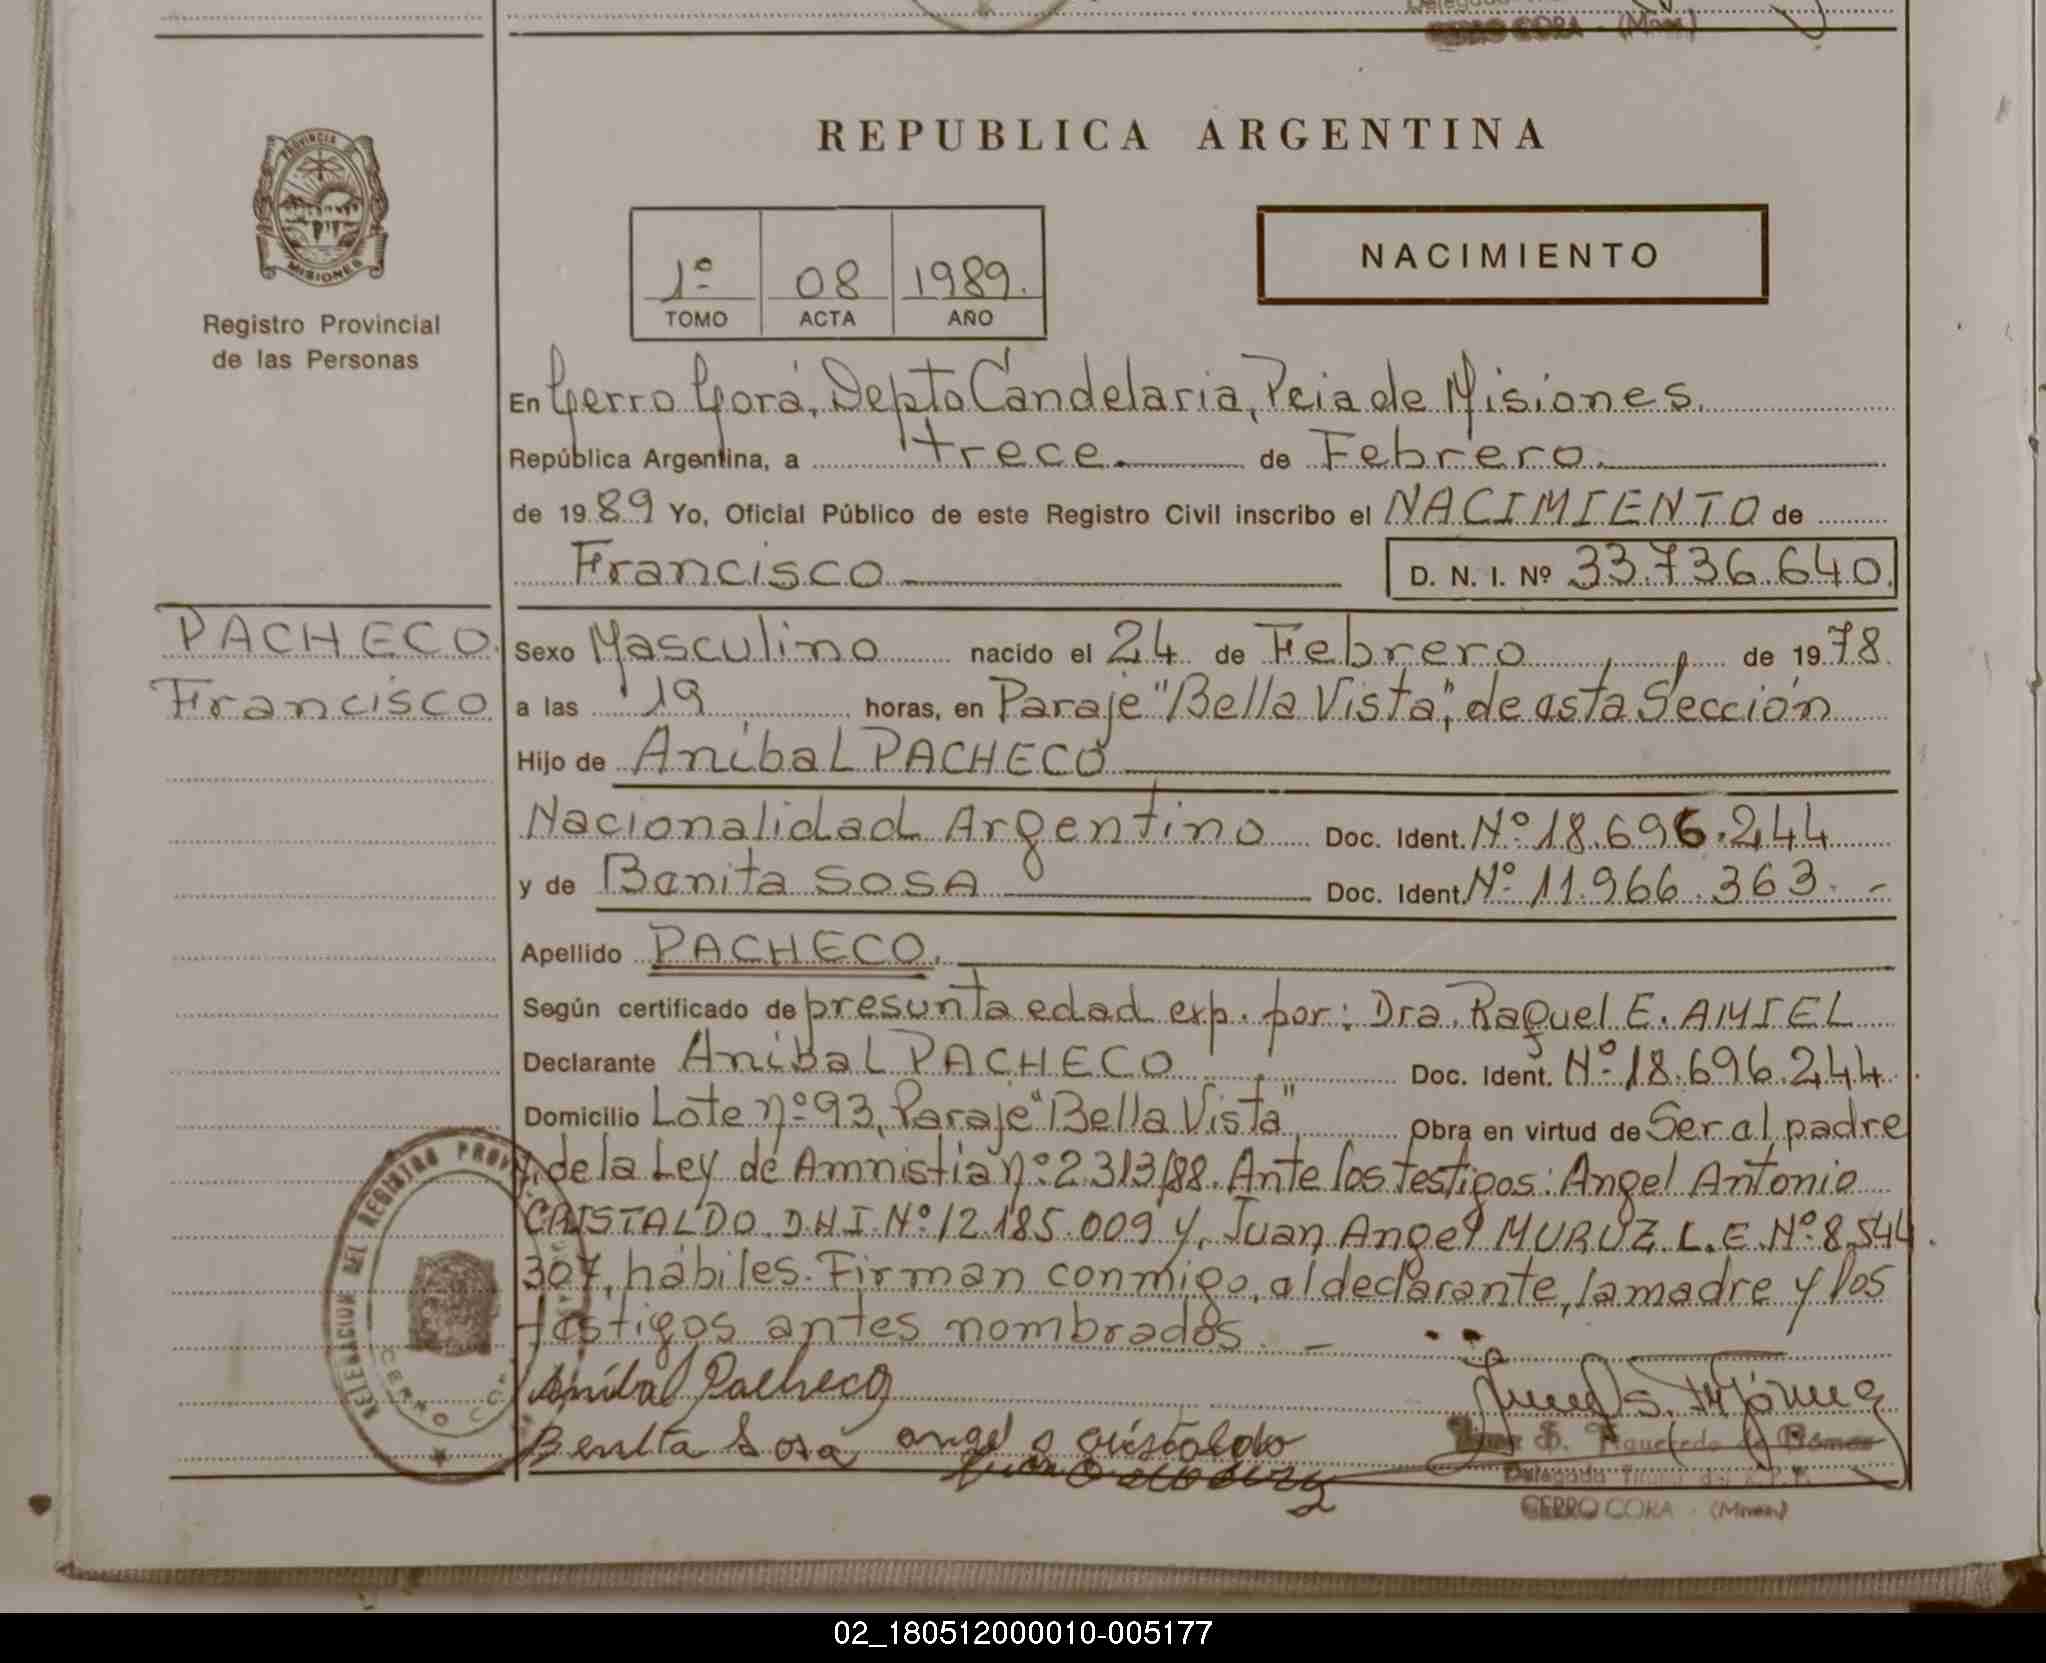 CERRO CORA - (Mnes)
REPUBLICA ARGENTINA
PROVINCIA DE
MISIONES
Registro Provincial
de las Personas
1º 08 1989.
TOMO ACTA AÑO
NACIMIENTO
En Cerro Corá, Depto Candelaria, Pcia de Misiones.
República Argentina, a trece. de Febrero.
de 1989 Yo, Oficial Público de este Registro Civil inscribo el NACIMIENTO de
Francisco D. N. I. Nº 33.736.640.
PACHECO.
Francisco
Sexo Masculino nacido el 24 de Febrero de 1978.
a las 19 horas, en Paraje "Bella Vista", de esta Sección
Hijo de Aníbal PACHECO
Nacionalidad Argentino Doc. Ident. Nº 18.696.244
y de Benita SOSA Doc. Ident. Nº 11.966.363.-
Apellido PACHECO.
Según certificado de presunta edad exp. por: Dra. Raquel E. AMIEL
Declarante Aníbal PACHECO Doc. Ident. Nº 18.696.244.
Domicilio Lote nº 93, Paraje "Bella Vista", Obra en virtud de Ser el padre
y de la Ley de Amnistía nº 2313/88. Ante los testigos: Angel Antonio
CRISTALDO D.N.I. Nº 12.185.009 y, Juan Angel MURUZ L.E. Nº 8.544.
307, hábiles. Firman conmigo, el declarante, la madre y los
testigos antes nombrados. -
Aníbal Pacheco
Benita Sosa angel a cristaldo
DELEGACION DEL REGISTRO PROV
CERRO CO
S. Figueredo de Gómez
Delegada Titular del R.P.P.
CERRO CORA - (Mnes)
02_180512000010-005177